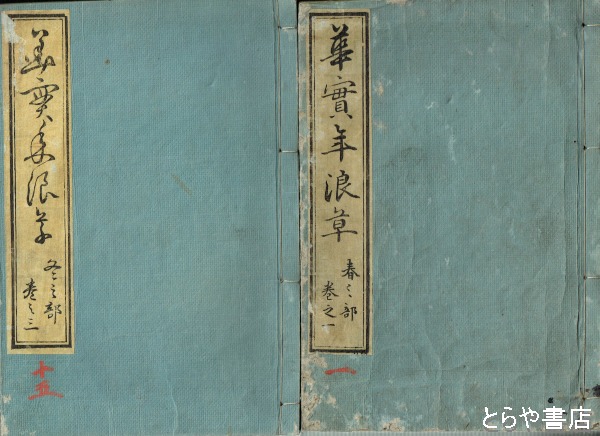 華實年浪草
春之部
巻之一
一
華實年浪草
冬之部
巻之三
十五
とらや書店